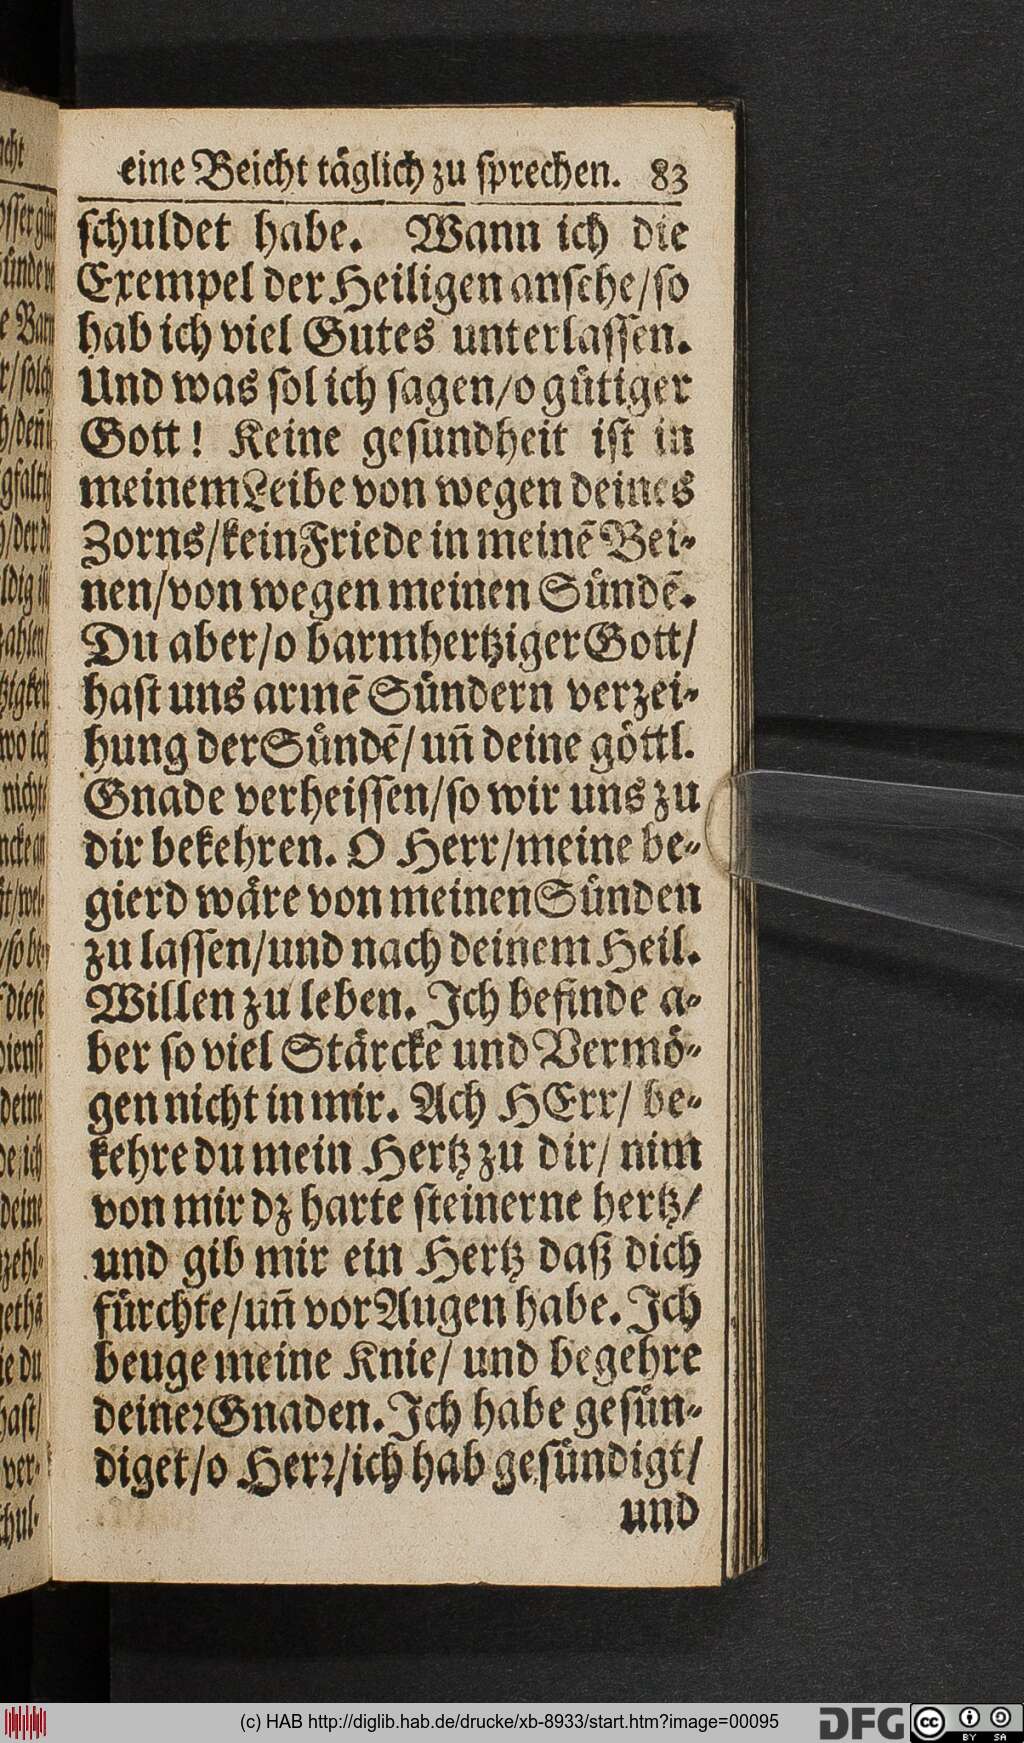 eine Beicht täglich zu sprechen. 83
schuldet habe. Wann ich die
Exempel der Heiligen ansehe/so
hab ich viel Gutes unterlassen.
Und was sol ich sagen/o gütiger
Gott! Keine gesundheit ist in
meinem Leibe von wegen deines
Zorns/kein Friede in meinē Bei-
nen/von wegen meinen Sündē.
Du aber/o barmhertziger Gott/
hast uns armē Sündern verzei-
hung der Sündē/ uñ deine göttl.
Gnade verheissen/so wir uns zu
dir bekehren. O Herr/meine be-
gierd wäre von meinen Sünden
zu lassen/und nach deinem Heil.
Willen zu leben. Ich befinde a-
ber so viel Stärcke und Vermö-
gen nicht in mir. Ach HErr/ be-
kehre du mein Hertz zu dir/ nim
von mir dz harte steinerne hertz/
und gib mir ein Hertz daß dich
fürchte/uñ vor Augen habe. Ich
beuge meine Knie/ und begehre
deiner Gnaden. Ich habe gesün-
diget/o Herr/ich hab gesündigt/
und
(c) HAB http://diglib.hab.de/drucke/xb-8933/start.htm?image=00095
DFG
cc BY SA